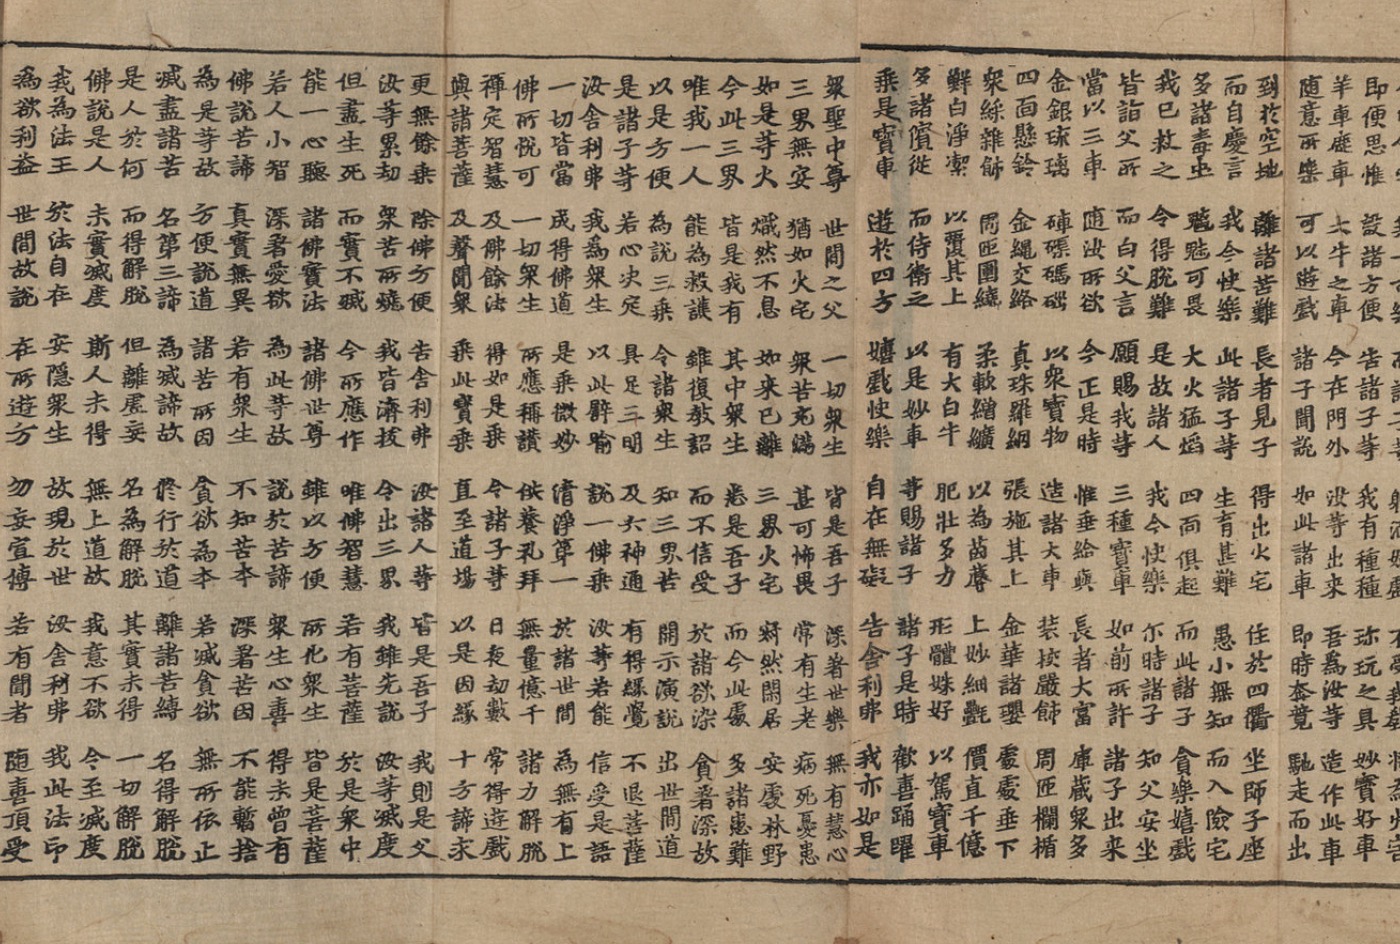 即便思惟 設諸方便 告諸子等 我有種種 珎玩之具 妙寶好車
羊車鹿車 大牛之車 今在門外 汝等出来 吾為汝等 造作此車
随意所樂 可以遊戲 諸子聞說 如此諸車 即時奔競 馳走而出
到於空地 離諸苦難 長者見子 得出火宅 住於四衢 坐師子座
而自慶言 我今快樂 此諸子等 生育甚難 愚小無知 而入險宅
多諸毒虫 魑魅可畏 大火猛焰 四面俱起 而此諸子 貪樂嬉戲
我已救之 令得脫難 是故諸人 我今快樂 尒時諸子 知父安坐
皆詣父所 而白父言 願賜我等 三種寶車 如前所許 諸子出来
當以三車 随汝所欲 今正是時 惟垂給與 長者大富 庫藏衆多
金銀琉璃 硨磲碼碯 以衆寶物 造諸大車 裝挍嚴飾 周匝欄楯
四面懸鈴 金繩交絡 真珠羅網 張施其上 金華諸瓔 處處垂下
衆綵雜飾 周匝圍繞 柔軟繒纊 以為茵蓐 上妙細㲲 價直千億
鮮白淨潔 以覆其上 有大白牛 肥壯多力 形體姝好 以駕寶車
多諸儐從 而侍衛之 以是妙車 等賜諸子 諸子是時 歡喜踊躍
乘是寶車 遊於四方 嬉戲快樂 自在無礙 告舍利弗 我亦如是
衆聖中尊 世間之父 一切衆生 皆是吾子 深著世樂 無有慧心
三界無安 猶如火宅 衆苦充滿 甚可怖畏 常有生老 病死憂患
如是等火 熾然不息 如来已離 三界火宅 寂然閑居 安處林野
今此三界 皆是我有 其中衆生 悉是吾子 而今此處 多諸患難
唯我一人 能為救護 雖復教詔 而不信受 於諸欲染 貪著深故
以是方便 為說三乘 令諸衆生 知三界苦 開示演說 出世間道
是諸子等 若心决定 具足三明 及六神通 有得緣覺 不退菩薩
汝舍利弗 我為衆生 以此譬喻 說一佛乘 汝等若能 信受是語
一切皆當 成得佛道 是乘微妙 清淨第一 於諸世間 為無有上
佛所悅可 一切衆生 所應稱讚 供養礼拜 無量億千 諸力解脫
禪定智慧 及佛餘法 得如是乘 令諸子等 日夜劫數 常得遊戲
與諸菩薩 及聲聞衆 乘此寶乘 直至道場 以是因緣 十方諦求
更無餘乘 除佛方便 告舍利弗 汝諸人等 皆是吾子 我則是父
汝等累劫 衆苦所燒 我皆濟拔 令出三界 我雖先說 汝等滅度
但盡生死 而實不滅 今所應作 唯佛智慧 若有菩薩 於是衆中
能一心聽 諸佛實法 諸佛世尊 雖以方便 所化衆生 皆是菩薩
若人小智 深著愛欲 為此等故 說於苦諦 衆生心喜 得未曾有
佛說苦諦 真實無異 若有衆生 不知苦本 深著苦因 不能暫捨
為是等故 方便說道 諸苦所因 貪欲為本 若滅貪欲 無所依止
滅盡諸苦 名第三諦 為滅諦故 修行於道 離諸苦縛 名得解脫
是人於何 而得解脫 但離虛妄 名為解脫 其實未得 一切解脫
佛說是人 未實滅度 斯人未得 無上道故 我意不欲 令至滅度
我為法王 於法自在 安隱衆生 故現於世 汝舍利弗 我此法印
為欲利益 世間故說 在所遊方 勿妄宣傳 若有聞者 随喜頂受